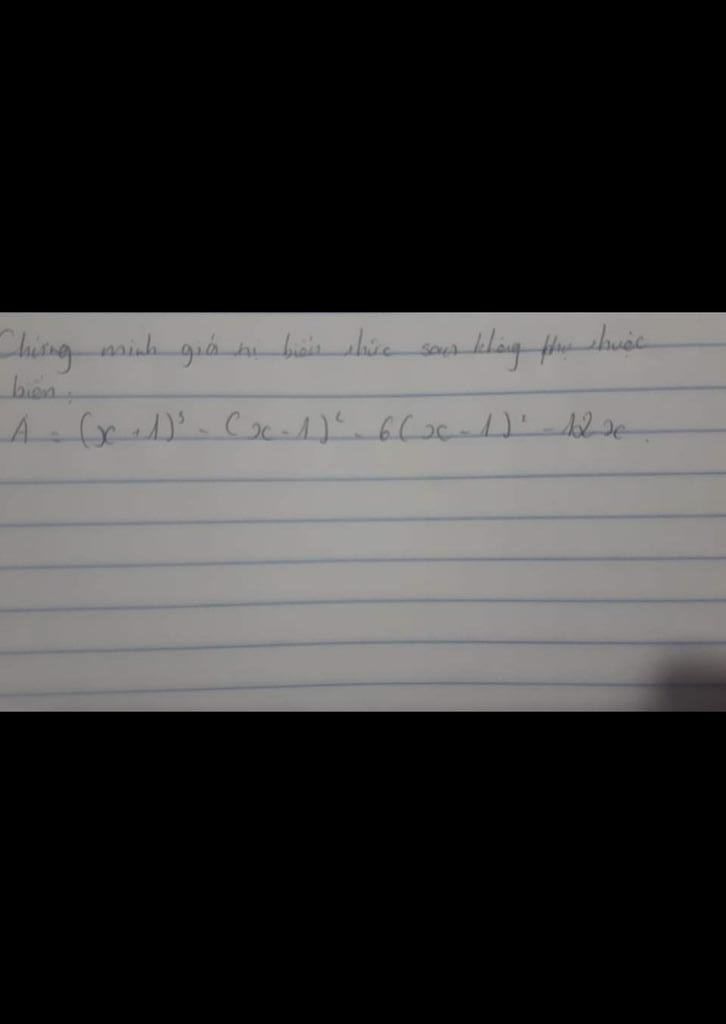 Chứng minh giá trị biểu thức sau không phụ thuộc
biến:
A = (x + 1)³ - (x - 1)² - 6(x - 1)² - 12x.